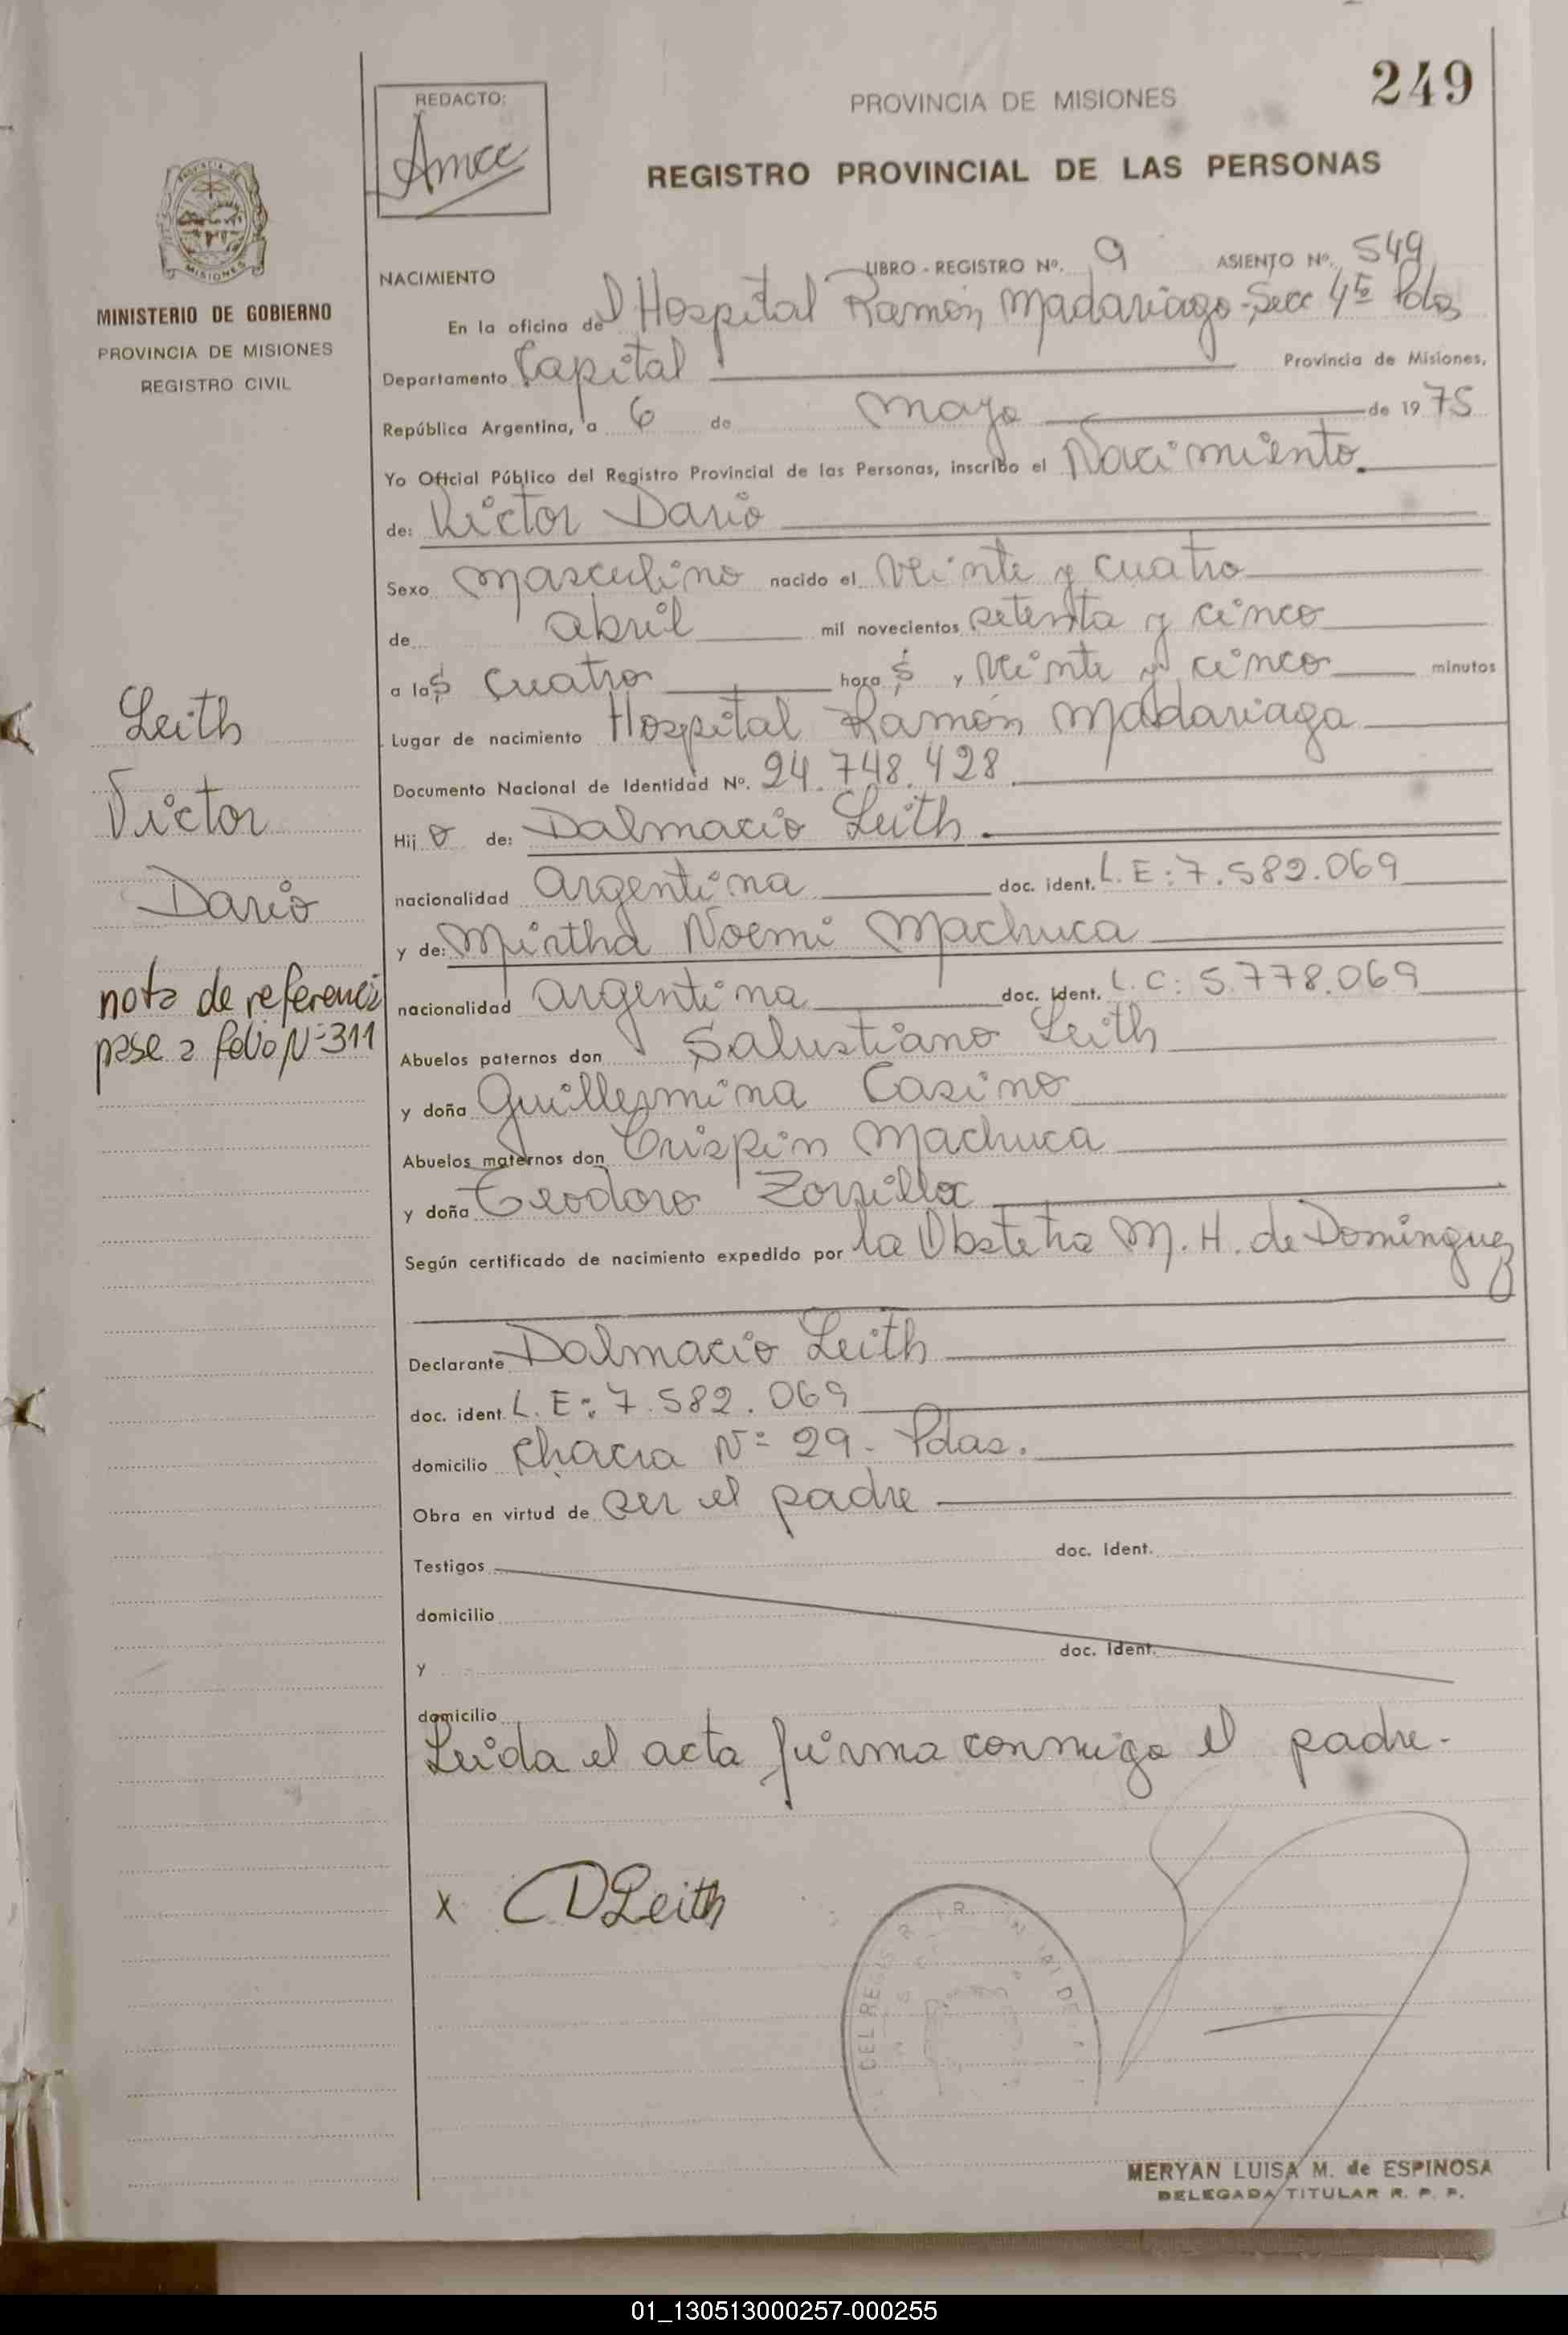 249
REDACTO:
Amcc
PROVINCIA DE MISIONES
REGISTRO PROVINCIAL DE LAS PERSONAS
MISIONES
MINISTERIO DE GOBIERNO
PROVINCIA DE MISIONES
REGISTRO CIVIL
NACIMIENTO LIBRO - REGISTRO Nº. 9 ASIENTO Nº. 549
En la oficina del Hospital Ramón Madariaga - Secc 4ª Pdas
Departamento Capital Provincia de Misiones,
República Argentina, a 6 de mayo de 1975
Yo Oficial Público del Registro Provincial de las Personas, inscribo el Nacimiento.
de: Victor Dario
Sexo masculino nacido el veinte y cuatro
de abril mil novecientos setenta y cinco
a las cuatro horas, y veinte y cinco minutos
Lugar de nacimiento Hospital Ramón Madariaga
Documento Nacional de Identidad Nº. 24.748.428
Hijo de: Dalmacio Leith.
nacionalidad argentina doc. ident. L.E: 7.582.069
y de: Mirtha Noemi Machuca
nacionalidad argentina doc. ident. L.C: 5.778.069
Abuelos paternos don Salustiano Leith
y doña Guillermina Casino
Abuelos maternos don Crispin Machuca
y doña Teodoro Zorrilla
Según certificado de nacimiento expedido por la Obstetra M. H. de Dominguez
Declarante Dalmacio Leith
doc. ident. L.E: 7.582.069
domicilio Chacra Nº 29 - Pdas.
Obra en virtud de ser el padre
Testigos doc. ident.
domicilio
y doc. ident.
domicilio
Leida el acta firma conmigo el padre.
Leith
Victor
Dario
nota de referenci
pase a folio Nº 311
x DLeith
DEL REGIS
MERYAN LUISA M. de ESPINOSA
DELEGADA TITULAR R. P. P.
01_130513000257-000255